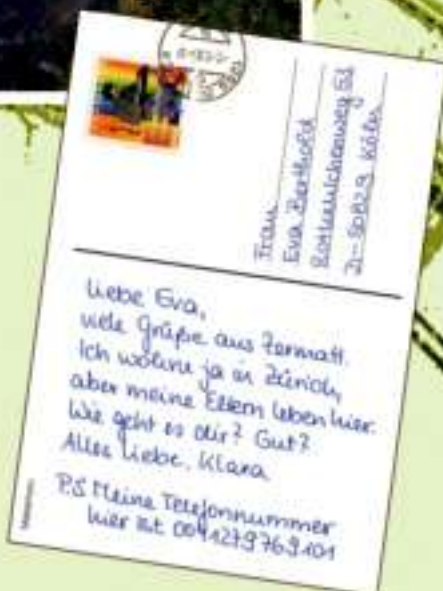 Frau
Eva Berthold
D-50829 Köln
Liebe Eva,
viele Grüße aus Zermatt.
Ich wohne ja in Zürich,
aber meine Eltern leben hier.
Wie geht es dir? Gut?
Alles Liebe, Klara
P.S Meine Telefonnummer
hier ist 0041279769101